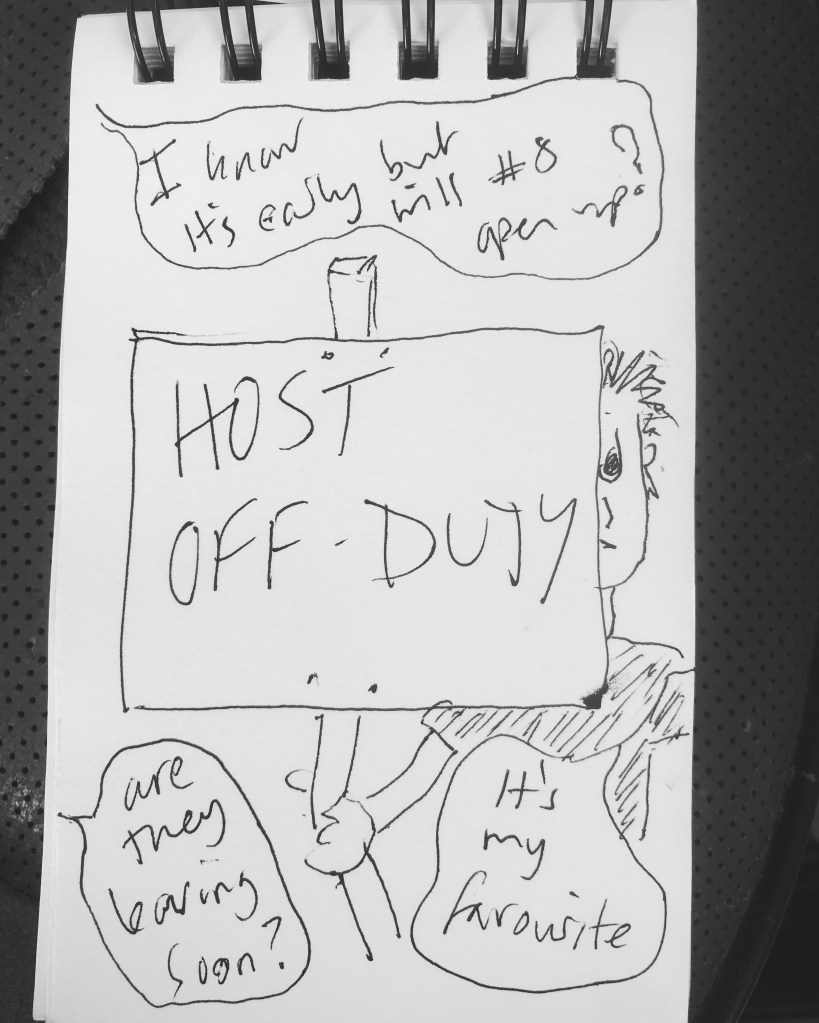 I know
it's early but
will #8
open up?
HOST
OFF-DUTY
are
they
leaving
soon?
It's
my
favourite